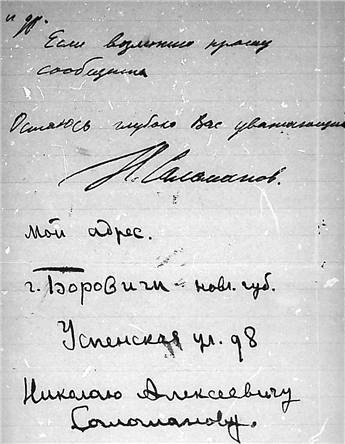 и др.
Если возможно прошу
сообщить
Остаюсь глубоко Вас уважающий
Н. Саломанов.
Мой адрес.
г. Боровичи новг. губ.
Успенская ул. д8
Николаю Алексеевичу
Соломанову.